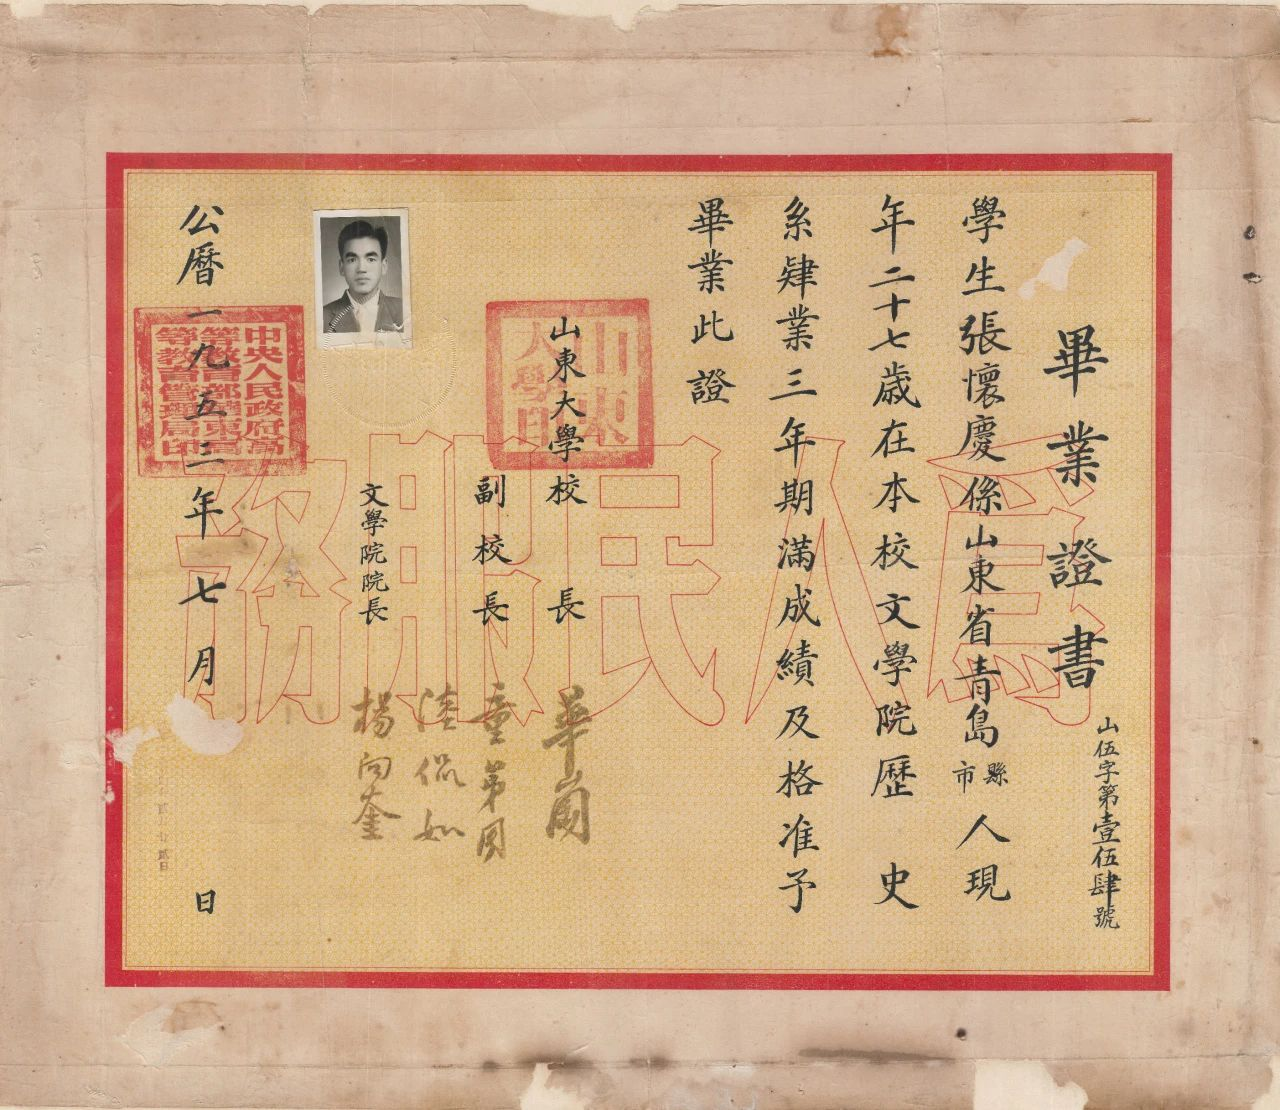 畢業證書
山伍字第壹伍肆號
學生張懷慶係山東省青島縣市人現
年二十七歲在本校文學院歷史
系肄業三年期滿成績及格准予
畢業此證
山東大學校長 華崗
副校長 童第周
陸侃如
文學院院長 楊向奎
公曆一九五三年七月 日
山東大學印
中央人民政府高等教育部華東高等教育管理局印
為人民服務